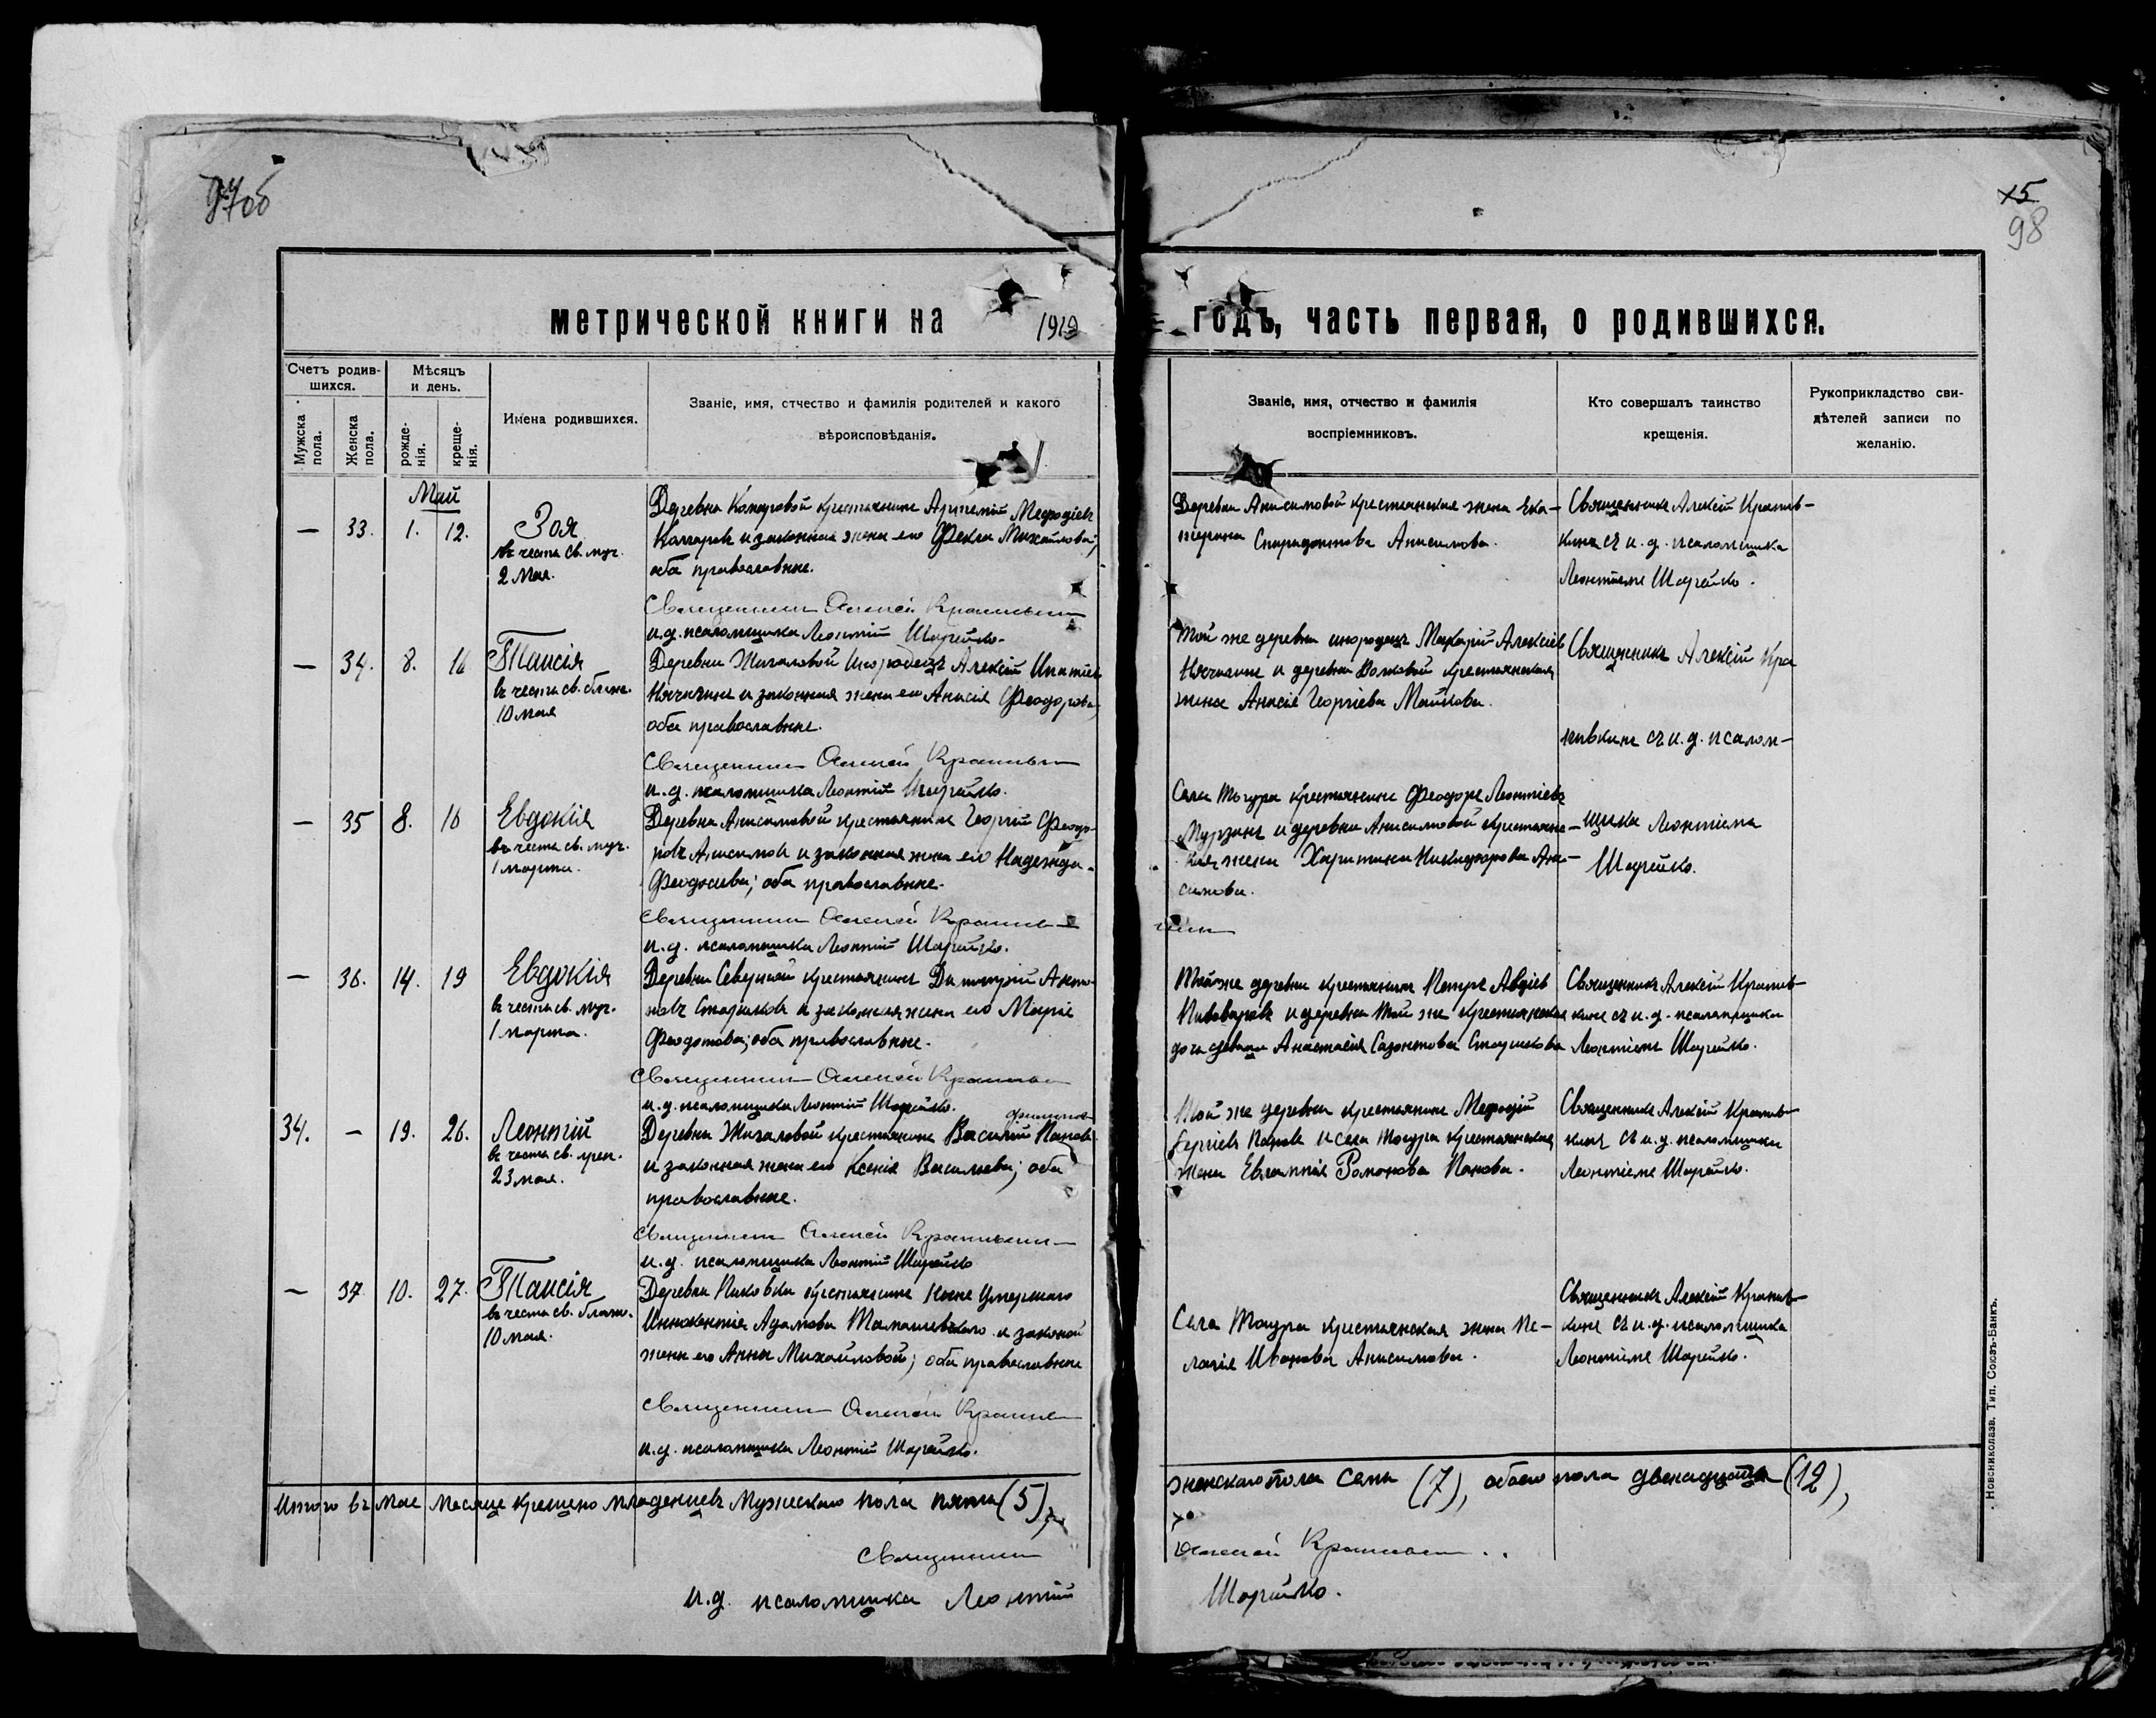 97об
15
98
метрической книги на 1919 годъ, часть первая, о родившихся.
Счетъ родив-
шихся.
Мѣсяцъ
и день.
Мужска
пола.
Женска
пола.
рожде-
нія.
креще-
нія.
Имена родившихся.
Званіе, имя, отчество и фамилія родителей и какого
вѣроисповѣданія.
Званіе, имя, отчество и фамилія
воспріемниковъ.
Кто совершалъ таинство
крещенія.
Рукоприкладство сви-
дѣтелей записи по
желанію.
Май
— 33. 1. 12.
Зоя
въ честь св. муч.
2 мая.
Деревни Комаровой крестьянинъ Артемій Мефодіевъ
Комаровъ и законная жена его Фекла Михайлова;
оба православные.
Священникъ Алексій
и.д. псаломщика Леонтій Шарейко.
Деревни Анисимовой крестьянская жена Ека-
терина Спиридонтова Анисимова.
Священникъ Алексій Кропив-
кинъ съ и.д. псаломщика
Леонтіемъ Шарейко.
— 34. 8. 16
Таисія
въ честь св. блаж.
10 мая
Деревни Жигаловой инородецъ Алексій Ипатіевъ
и законная жена его Анисія Феодорова,
оба православные.
Священникъ Алексій
и.д. псаломщика Леонтій Шарейко.
Той же деревни инородецъ Алексіевъ
и деревни Волковой крестьянская
жена Анисія Георгіева Майкова.
Священникъ Алексій Кро
пивкинъ съ и.д. псалом-
щика Леонтіемъ
Шарейко.
— 35 8. 16
Евдокія
въ честь св. муч.
1 марта.
Деревни Анисимовой крестьянинъ Георгій Феодо-
ровъ Анисимовъ и законная жена его Надежда
Феодосіева; оба православные.
Священникъ Алексій
и.д. псаломщика Леонтій Шарейко.
Села Тогура крестьянинъ Феодоръ Леонтіевъ
Мурзинъ и деревни Анисимовой крестьянс-
кая жена Харитина Никифорова Ани-
симова.
— 36. 14. 19
Евдокія
въ честь св. муч.
1 марта.
Деревни Северной крестьянинъ Димитрій Анто-
новъ Стариковъ и законная жена его Марія
Федотова; оба православные.
Священникъ Алексій
и.д. псаломщика Леонтій Шарейко.
Той же деревни крестьянинъ Петръ Авдіевъ
Пивоваровъ и деревни той же крестьянская
дочь девица Анастасія Сазонтова Старикова
Священникъ Алексій Кропив-
кинъ съ и.д. псаломщика
Леонтіемъ Шарейко.
34. — 19. 26.
Леонтій
въ честь св. преп.
23 мая.
Филиповъ
Деревни Жигаловой крестьянинъ Василій Пановъ
и законная жена его Ксенія Васильева; оба
православные.
Священникъ Алексій
и.д. псаломщика Леонтій Шарейко
Той же деревни крестьянинъ Мефодій
Сергіевъ Пановъ и села Тогура крестьянская
жена Евлампія Романова Панова.
Священникъ Алексій Кропив-
кинъ съ и.д. псаломщика
Леонтіемъ Шарейко.
— 37. 10. 27.
Таисія
въ честь св. блаж.
10 мая.
Деревни Пиковки крестьянина ныне умершаго
Иннокентія Адамова и законой
жены его Анны Михайловой; оба православные
Священникъ Алексій
и.д. псаломщика Леонтій Шарейко.
Села Тогура крестьянская жена Пе-
лагія Иванова Анисимова.
Священникъ Алексій Кропив-
кинъ съ и.д. псаломщика
Леонтіемъ Шарейко.
Итого въ мае месяце крещено младенцевъ мужескаго пола пять (5), женскаго пола семь (7), обоего пола двенадцать (12),
Священникъ Алексій
и.д. псаломщика Леонтій Шарейко.
Новониколаев. Тип. Союзъ-Банкъ.